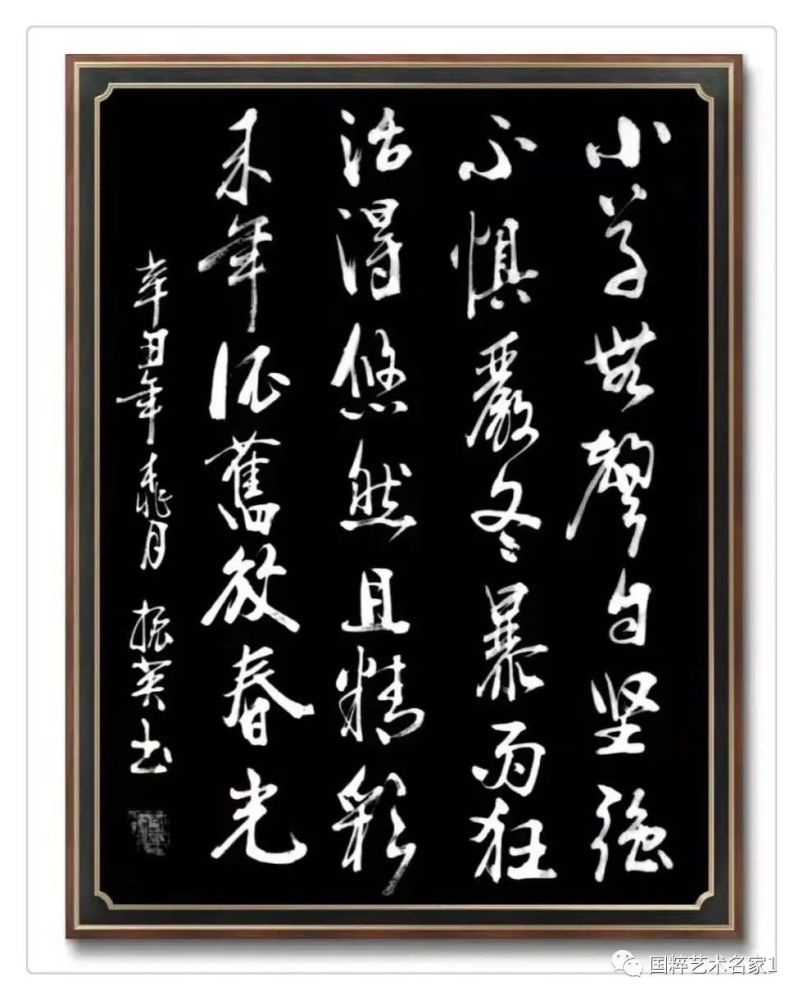 小草无聲自坚強
不懼嚴冬暴雨狂
活得悠然且精彩
来年依舊放春光
辛丑年桃月 振英书
国粹艺术名家1